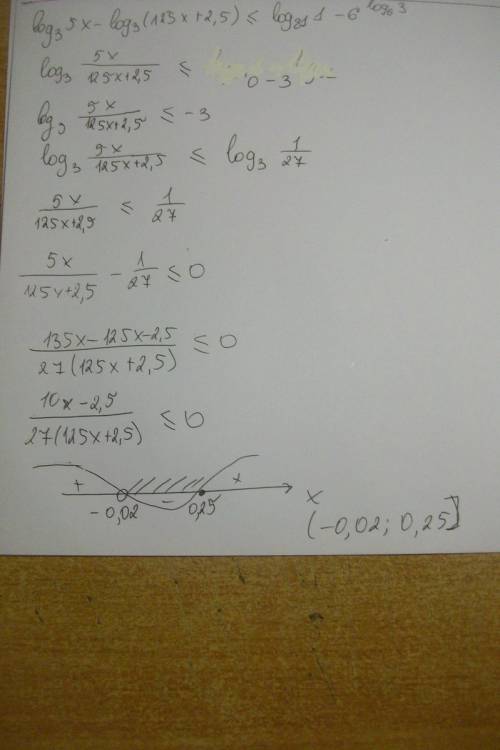 log₃ 5x - log₃(125x + 2,5) ≤ log₈₁ 1 - 6^log₆ 3
log₃ 5x/(125x+2,5) ≤ 0 - 3
log₃ 5x/(125x+2,5) ≤ -3
log₃ 5x/(125x+2,5) ≤ log₃ 1/27
5x/(125x+2,5) ≤ 1/27
5x/(125x+2,5) - 1/27 ≤ 0
(135x - 125x - 2,5)/(27(125x+2,5)) ≤ 0
(10x - 2,5)/(27(125x+2,5)) ≤ 0
+ - +
-0,02 0,25 x
(-0,02; 0,25]